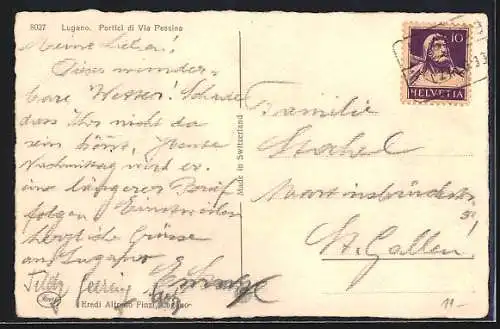 8027 Lugano. Portici di Via Pessina
Meine Lieben!
Dieses wunder-
bare Wetter! Schade
dass Ihr nicht da
sein könnt. Heute
Nachmittag wird er.
ein längerer Brief
folgen. Einstweilen
herzliche Grüsse
aus Lugano
Eredi Alfredo Finzi, Lugano
Made in Switzerland
10
HELVETIA
Familie
Stahel
Martinsbruckstr.
St. Gallen